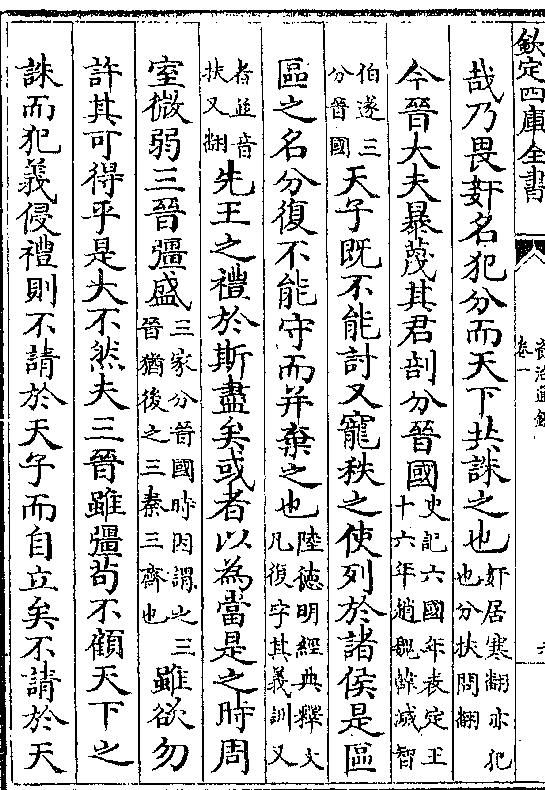 欽定四庫全書
資治通鑑
卷一
哉乃畏奸名犯分而天下共誅之也奸居寒翻亦犯也分扶問翻
今晉大夫暴蔑其君剖分晉國史記六國年表定王十六年趙魏韓滅智
伯遂三分晉國天子既不能討又寵秩之使列於諸侯是區
區之名分復不能守而并棄之也陸德明經典釋文凡復字其義訓又
者並音扶又翻先王之禮於斯盡矣或者以為當是之時周
室微弱三晉彊盛三家分晉國時因謂之三晉猶後之三秦三齊也雖欲勿
許其可得乎是大不然夫三晉雖彊茍不顧天下之
誅而犯義侵禮則不請於天子而自立矣不請於天